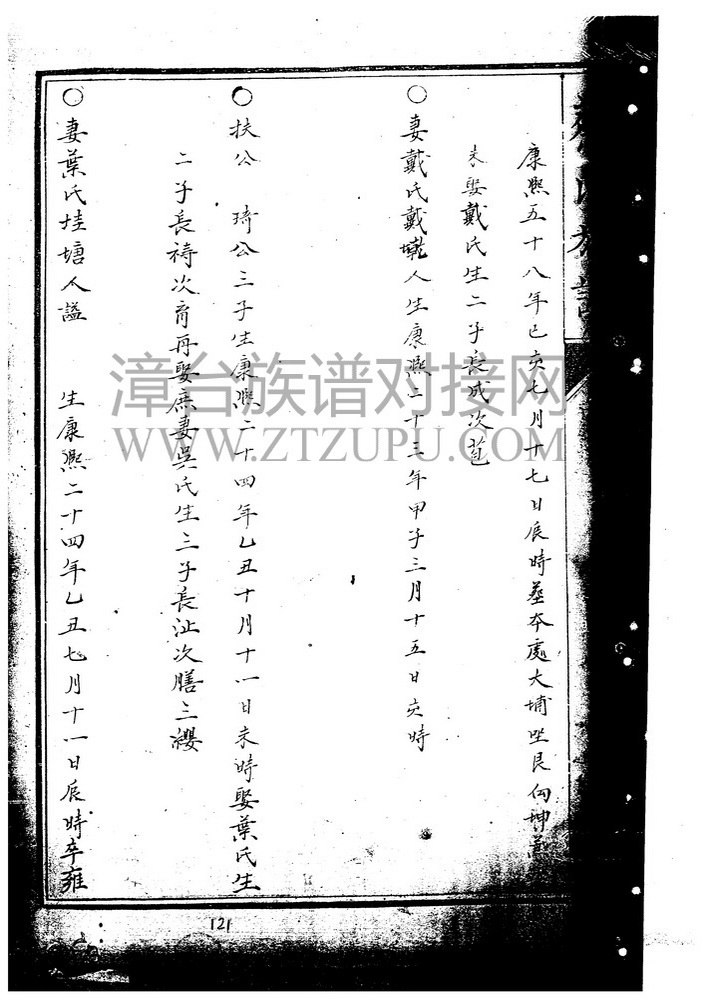 康熙五十八年己亥七月十七日辰時葬本處大埔坐艮向坤兼
未娶戴氏生二子長成次苞
○妻戴氏戴墘人生康熙二十三年甲子三月十五日亥時
○扶公 琦公三子生康熙二十四年乙丑十月十一日未時娶葉氏生
二子長禱次育再娶庶妻吳氏生三子長沚次膳三纓
○妻葉氏垚塘人謚 生康熙二十四年乙丑七月十一日辰時卒雍
漳台族谱对接网
WWW.ZTZUPU.COM
121